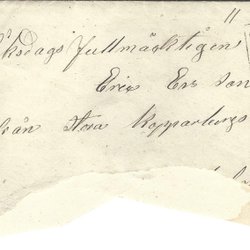 11
Riksdags fullmäktigen
Eric Ers son
från Stora Kopparbergs